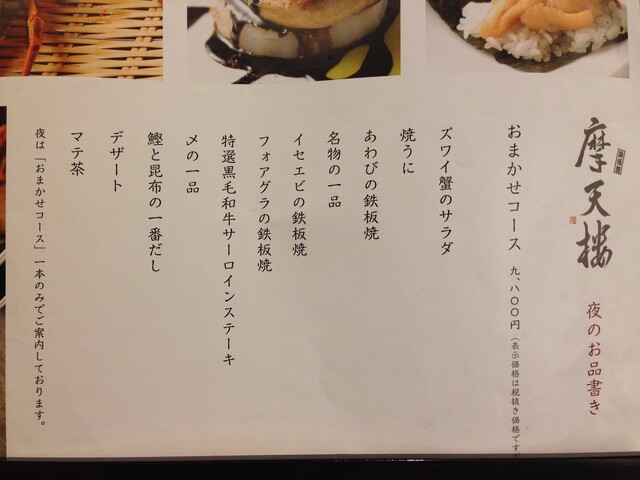 摩天楼
夜のお品書き
おまかせコース 九、八〇〇円（表示価格は税抜き価格です
ズワイ蟹のサラダ
焼うに
あわびの鉄板焼
名物の一品
イセエビの鉄板焼
フォアグラの鉄板焼
特選黒毛和牛サーロインステーキ
〆の一品
鰹と昆布の一番だし
デザート
マテ茶
夜は「おまかせコース」一本のみでご案内しております。